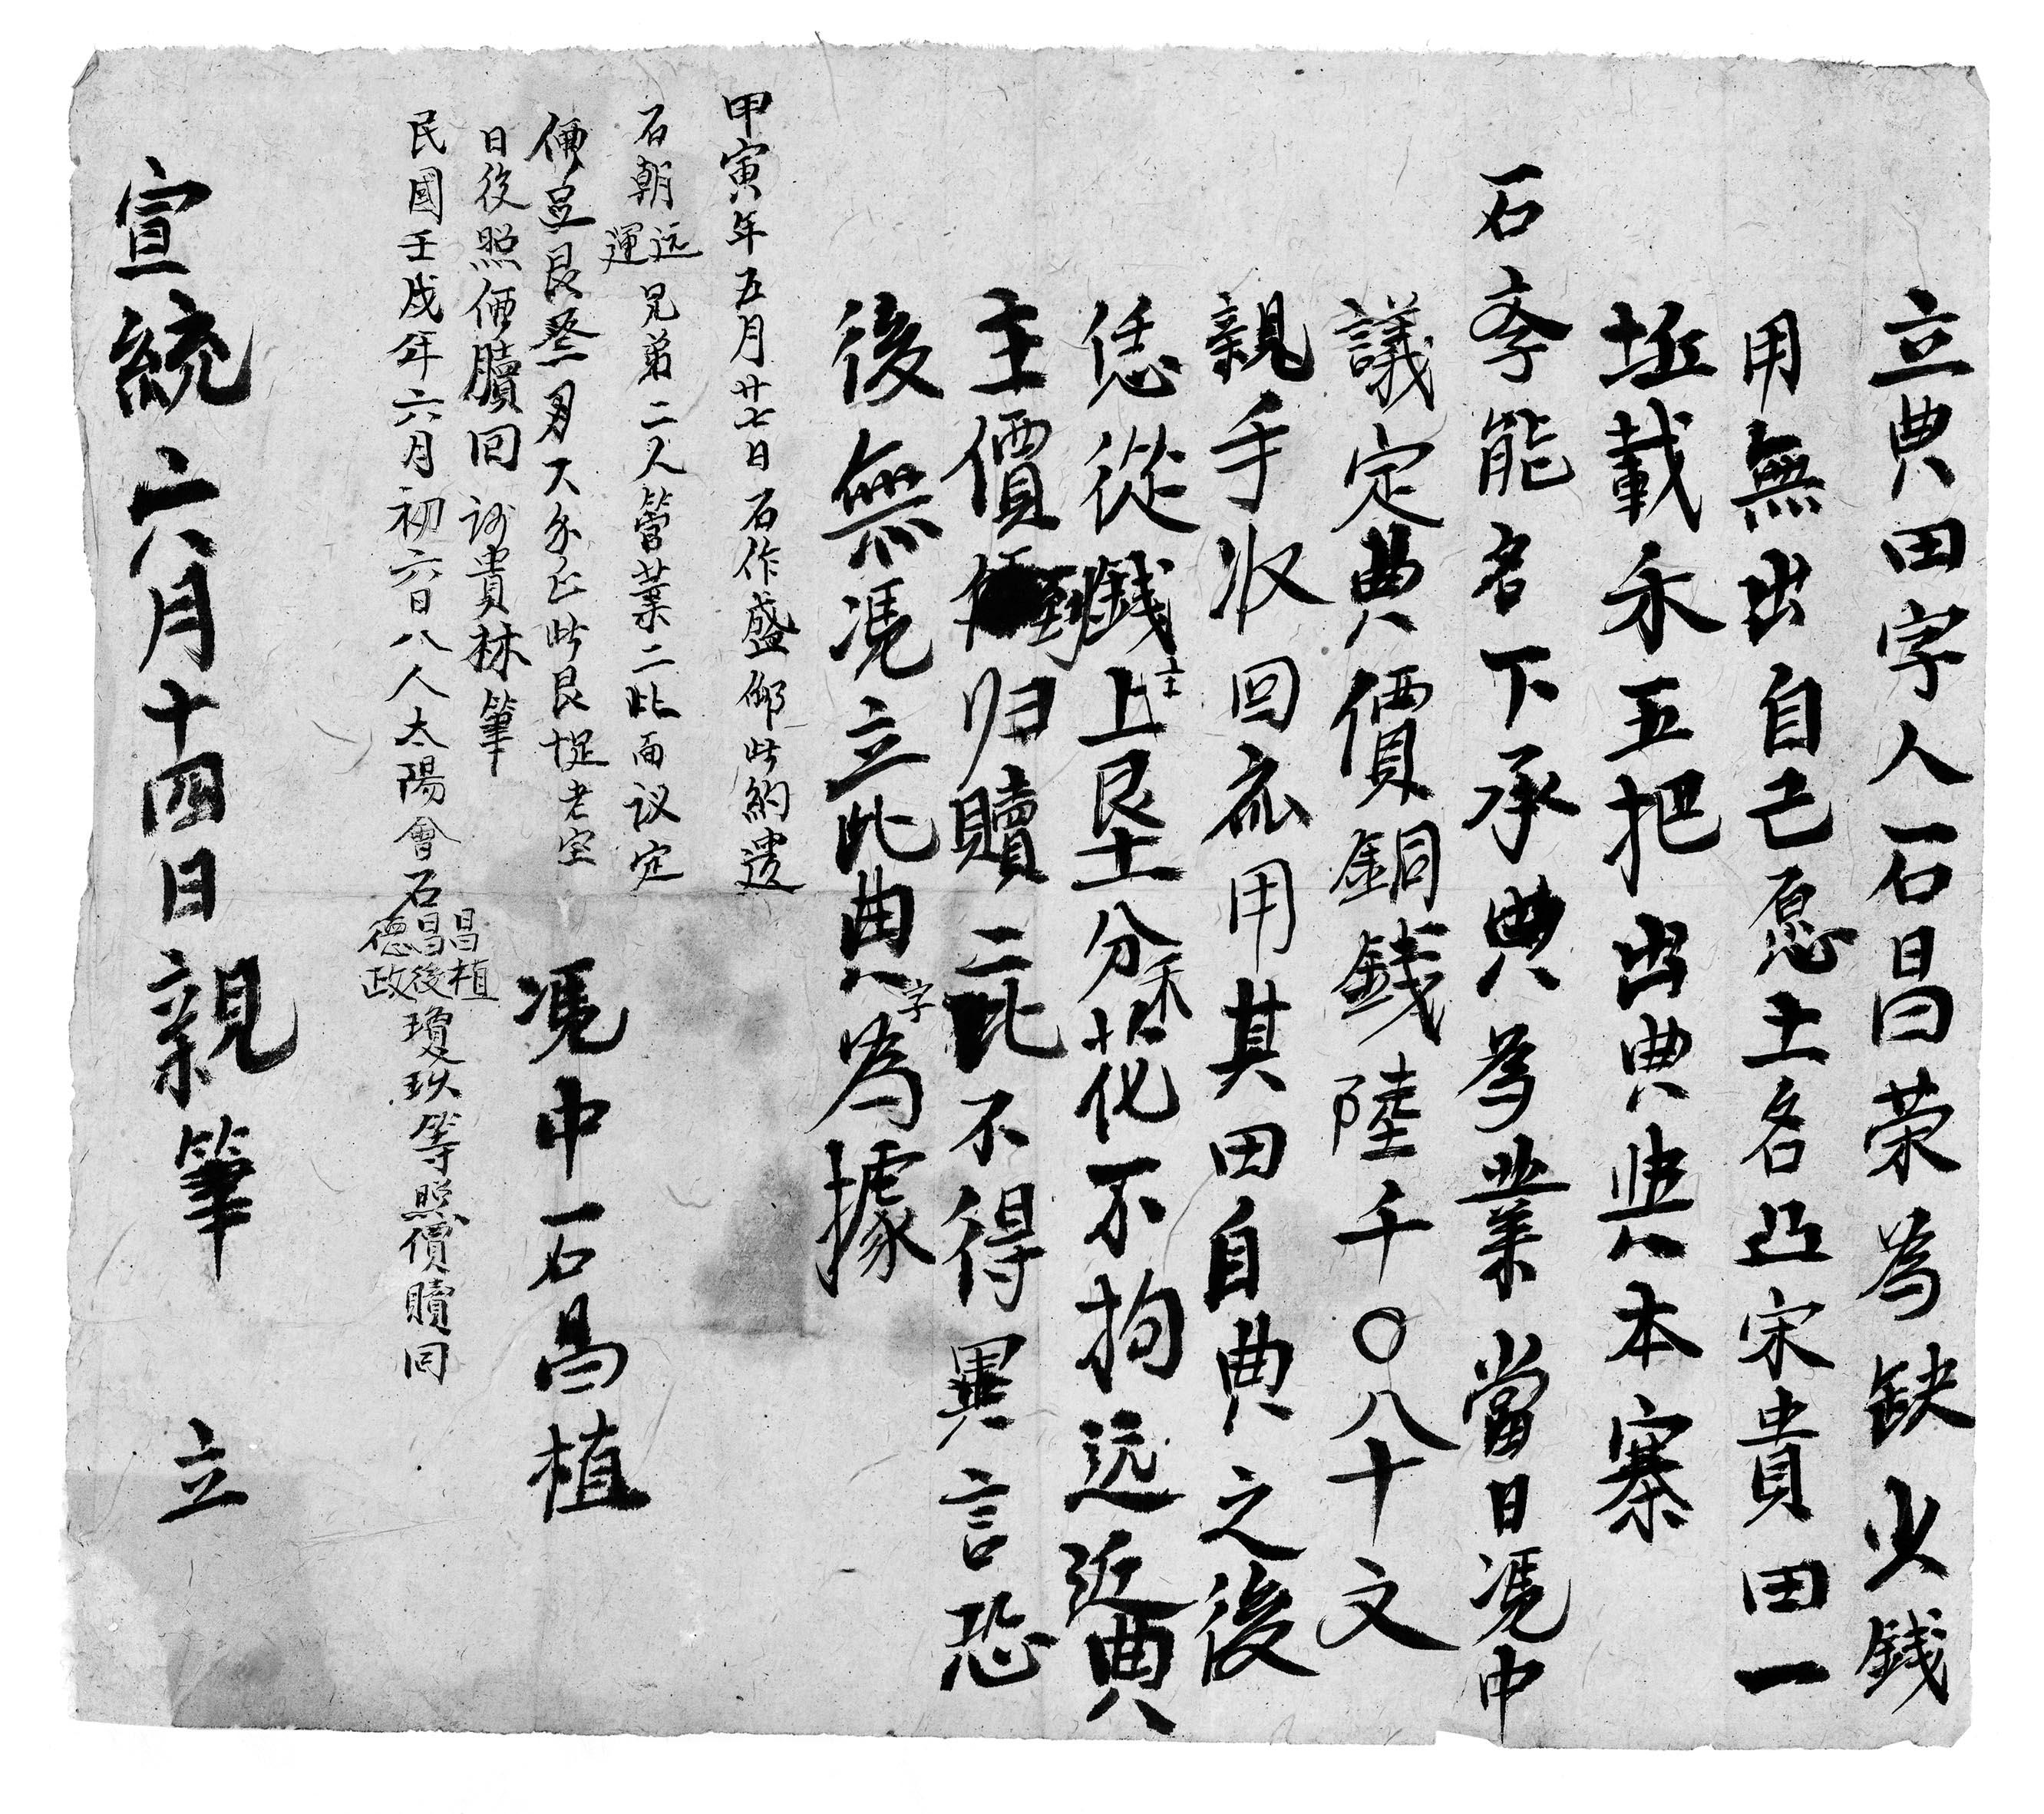 立典田字人石昌荣為缺少錢
用無出自己愿土名凸宋貴田一
坵載禾五把出典典本寨
石孝能名下承典為業當日馮中
議定典價銅錢陸千〇八十文
親手收回應用其田自典之後
恁從錢主上墾分禾花不拘远近典
主價到归贖二比不得異言恐
後無馮立此典字為據
甲寅年五月廿七日石作盛 此約遗
石朝远運兄弟二人管業二比面议定
價足艮 此艮 老宝
日後照價贖回 貴林筆
馮中石昌植
民國壬戌年六月初六日八人太陽會石昌植昌後德政瓊玖等照價贖回
宣統六年六月十四日親筆 立